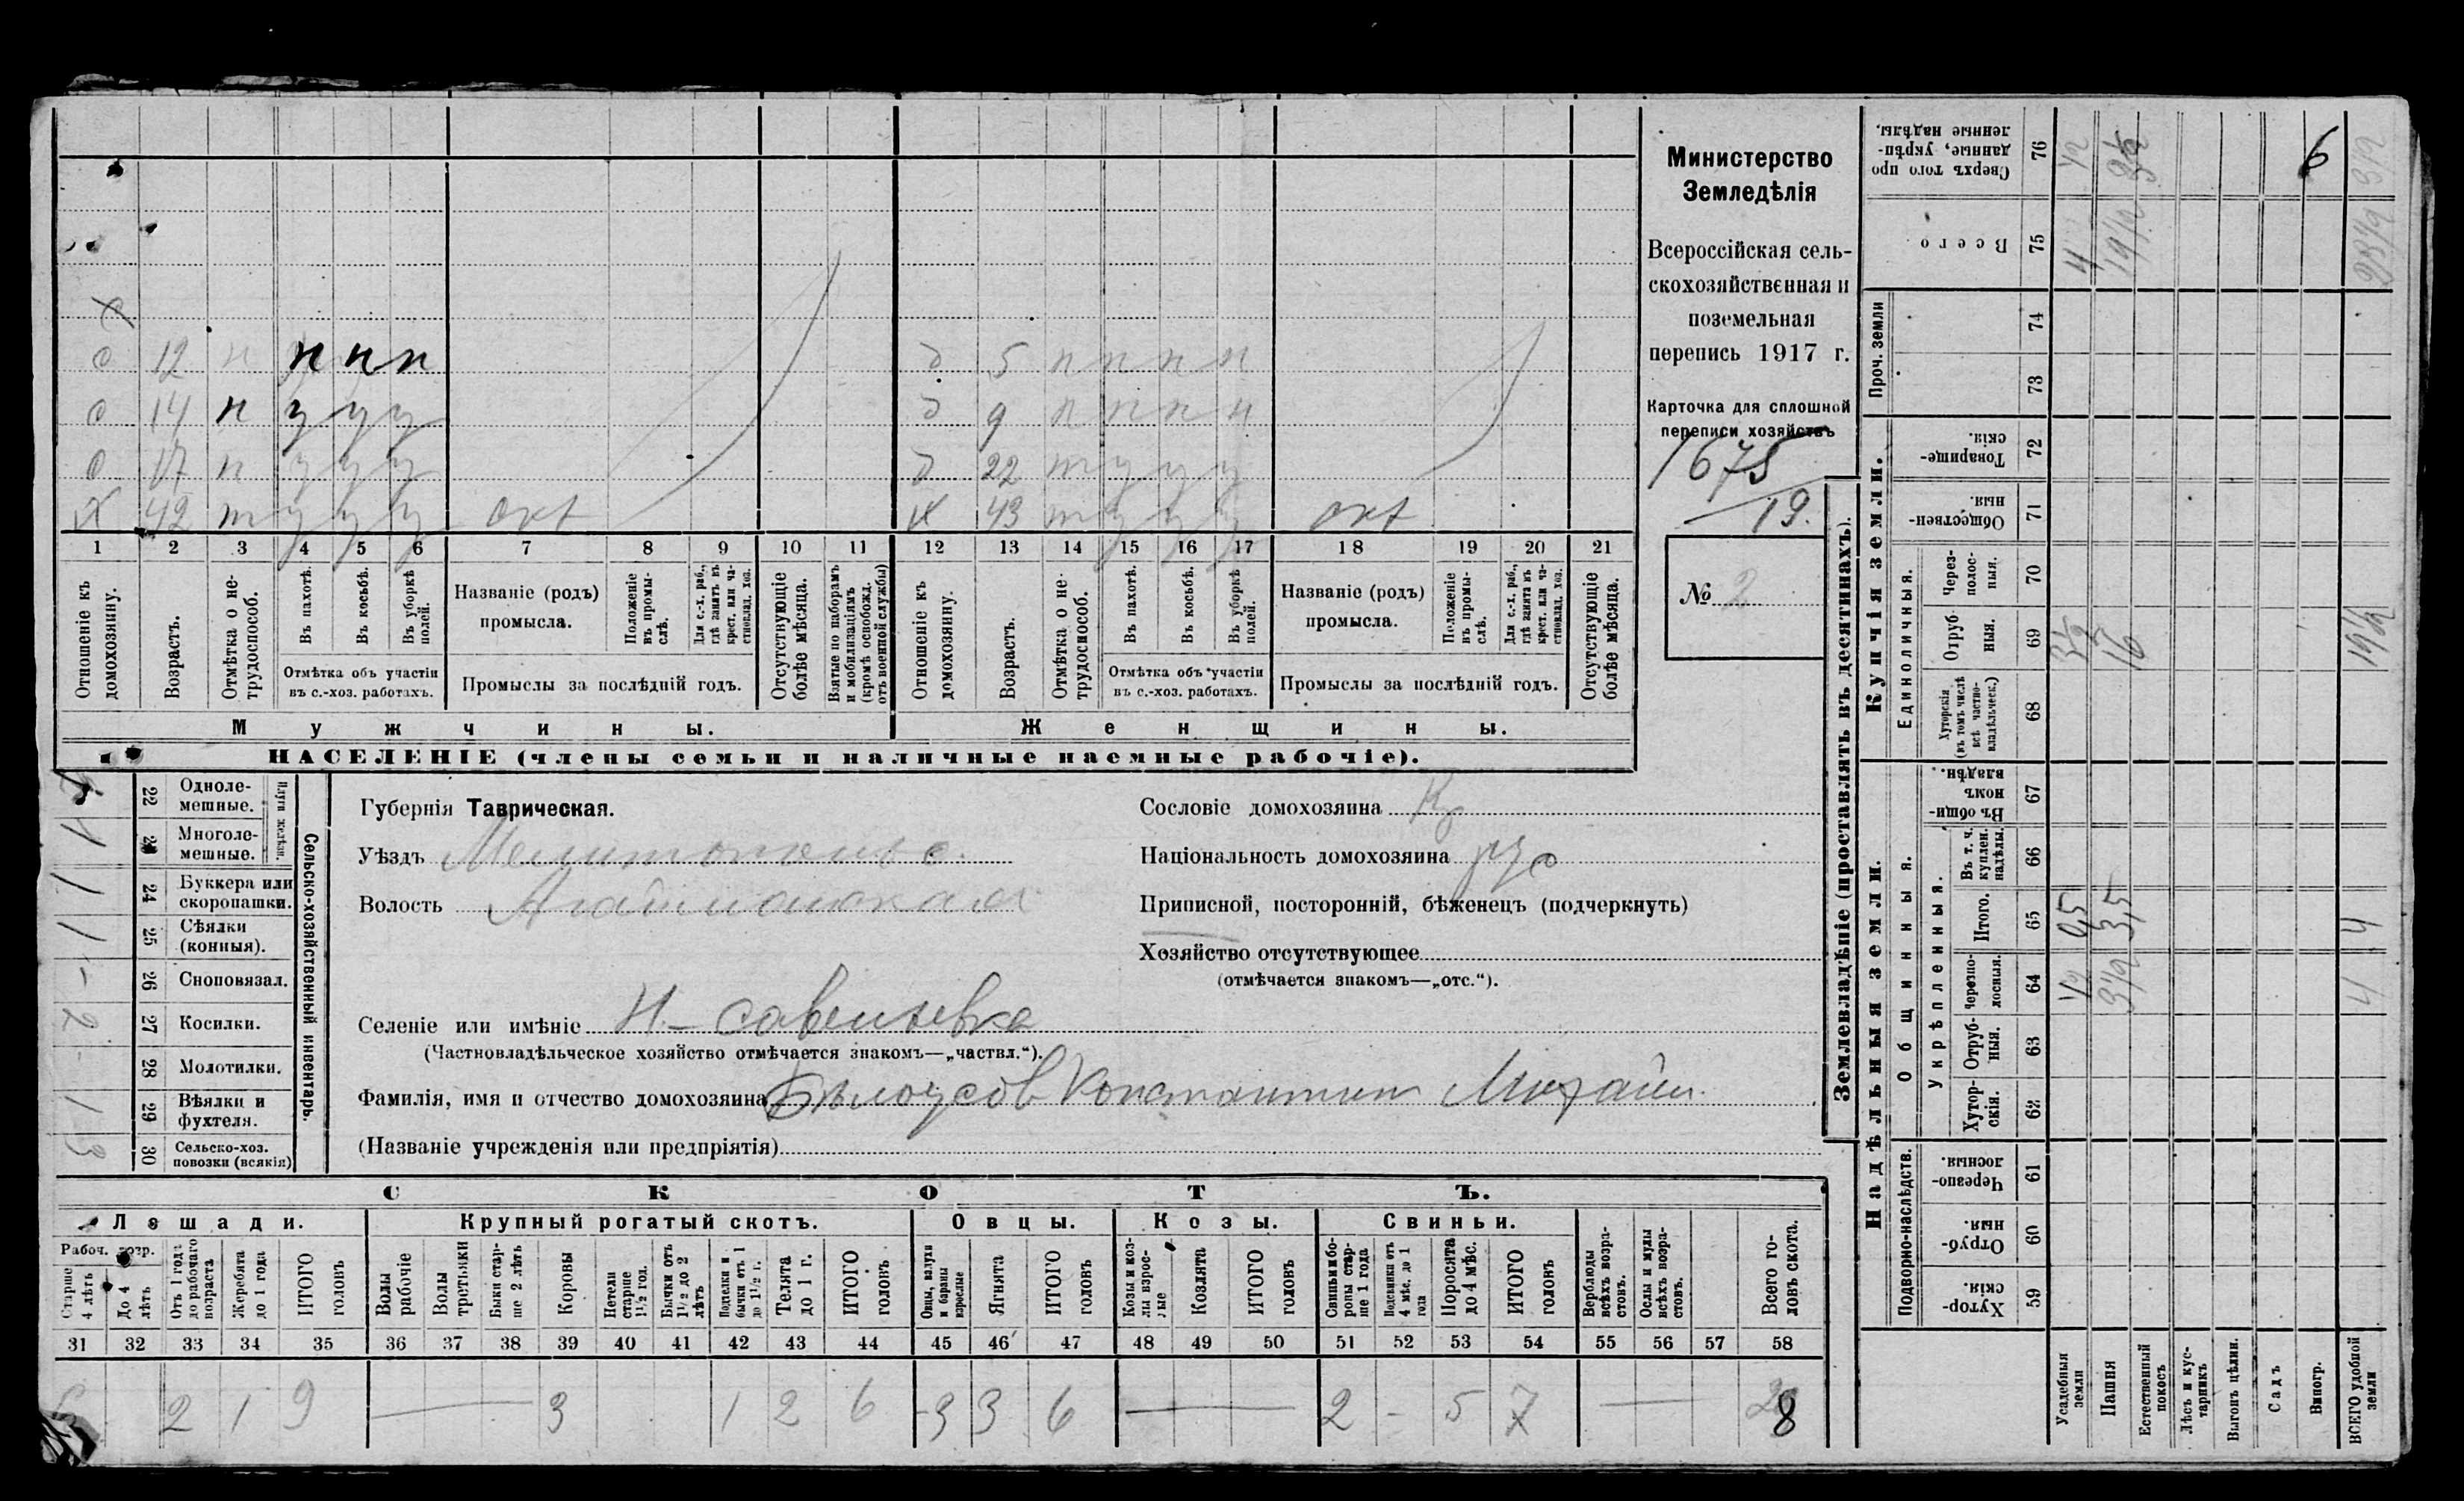 Министерство
Земледѣлія
Всероссійская сель-
скохозяйственная и
поземельная
перепись 1917 г.
Карточка для сплошной
переписи хозяйствъ
1675
19.
№ 2
с 12 н н н н
с 14 н у у у
с 17 н у у у
х 42 т у у у окт
д 5 н н н н
д 9 н н н н
д 22 т у у у
ж 43 т у у у окт
1 2 3 4 5 6 7 8 9 10 11 12 13 14 15 16 17 18 19 20 21
Отношеніе къ домохозяину.
Возрастъ.
Отмѣтка о не-трудоспособ.
Въ пахотѣ.
Въ косьбѣ.
Въ уборкѣ полей.
Отмѣтка объ участіи
въ с.-хоз. работахъ.
Названіе (родъ)
промысла.
Положеніе въ промы-слѣ.
Для с.-х. раб., гдѣ занятъ въ крест. или ча-стновлад. хоз.
Промыслы за послѣдній годъ.
Отсутствующіе болѣе мѣсяца.
Взятые по наборамъ и мобилизаціямъ (кромѣ освобожд. отъ военной службы)
Отношеніе къ домохозяину.
Возрастъ.
Отмѣтка о не-трудоспособ.
Въ пахотѣ.
Въ косьбѣ.
Въ уборкѣ полей.
Отмѣтка объ участіи
въ с.-хоз. работахъ.
Названіе (родъ)
промысла.
Положеніе въ промы-слѣ.
Для с.-х. раб., гдѣ занята въ крест. или ча-стновлад. хоз.
Промыслы за послѣдній годъ.
Отсутствующіе болѣе мѣсяца.
Мужчины.
Женщины.
НАСЕЛЕНІЕ (члены семьи и наличные наемные рабочіе).
Сельско-хозяйственный инвентарь.
Плуги желѣзн.
22 Одноле-мешные.
23 Многоле-мешные. 1
24 Буккера или скоропашки. 1
25 Сѣялки (конныя). 1
26 Сноповязал. -
27 Косилки. 2
28 Молотилки. -
29 Вѣялки и фухтеля. 1
30 Сельско-хоз. повозки (всякія) 3
Губернія Таврическая.
Уѣздъ Мелитопольс.
Волость Агайманская
Селеніе или имѣніе Н-савельевка
(Частновладѣльческое хозяйство отмѣчается знакомъ—„частвл.“).
Фамилія, имя и отчество домохозяина Бѣлоусов Константин Михайл.
(Названіе учрежденія или предпріятія)
Сословіе домохозяина Кр
Національность домохозяина рус
Приписной, посторонній, бѣженецъ (подчеркнуть)
Хозяйство отсутствующее
(отмѣчается знакомъ—„отс.“).
СКОТЪ.
Лошади.
Рабоч. возр.
Старше 4 лѣтъ
До 4 лѣтъ
Отъ 1 года до рабочаго возраста
Жеребята до 1 года
ИТОГО головъ
Крупный рогатый скотъ.
Волы рабочіе
Волы третьяки
Быки стар-ше 2 лѣтъ
Коровы
Нетели старше 1½ год.
Бычки отъ 1½ до 2 лѣтъ
Подтелки и бычки отъ 1 до 1½ г.
Телята до 1 г.
ИТОГО головъ
Овцы.
Овцы, валухи и бараны взрослые
Ягнята
ИТОГО головъ
Козы.
Козы и коз-лы взрос-лые
Козлята
ИТОГО головъ
Свиньи.
Свиньи и бо-ровы стар-ше 1 года
Подсвинки отъ 4 мѣс. до 1 года
Поросята до 4 мѣс.
ИТОГО головъ
Верблюды всѣхъ возра-стовъ.
Ослы и мулы всѣхъ возра-стовъ.
Всего го-ловъ скота.
31 32 33 34 35 36 37 38 39 40 41 42 43 44 45 46 47 48 49 50 51 52 53 54 55 56 57 58
6 2 1 9 — 3 1 2 6 3 3 6 — 2 - 5 7 —
Землевладѣніе (проставлять въ десятинахъ).
Надѣльныя земли.
Купчія земли.
Проч. земли
Подворно-наслѣдств.
Общинныя.
Укрѣпленныя.
Единоличныя.
59 Хутор-скія.
60 Отруб-ныя.
61 Черезпо-лосныя.
62 Хутор-скія.
63 Отруб-ныя.
64 Черезпо-лосныя. ½ 3½ 4
65 Итого. 0,5 3,5 4
66 Въ т. ч. куплен. надѣлы.
67 Въ общи-номъ владѣн.
68 Хуторскія (въ томъ числѣ всѣ частно-владѣльческ.)
69 Отруб-ныя. 3½ 16 19½
70 Через-полос-ныя.
71 Обществен-ныя.
72 Товарище-скія.
73
74
75 Всего 4 19½ 23½
76 Сверхъ того про-данные, укрѣп-ленные надѣлы. ½ 3½ 6
Усадебныя земли
Пашня
Естественный покосъ
Лѣсъ и кус-тарникъ
Выгонъ цѣлин.
Садъ
Виногр.
ВСЕГО удобной земли